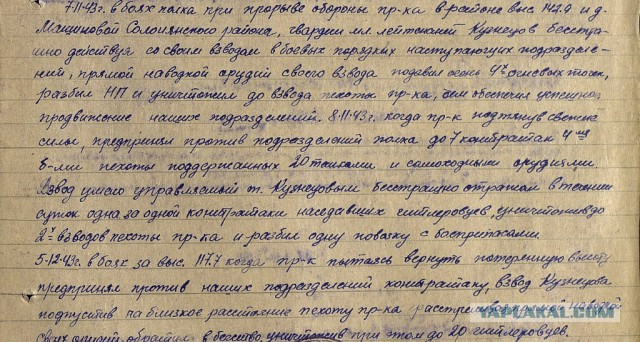 7-11-43г. в боях полка при прорыве обороны пр-ка в районе выс. 142.9 и д.
Машиновой Солонянского района, гвардии мл. лейтенант Кузнецов бесстра-
шно действуя со своим взводом в боевых порядках наступающих подразделе-
ний, прямой наводкой орудий своего взвода подавил огонь 4х огневых точек,
разбил НП и уничтожил до взвода пехоты пр-ка, чем обеспечил успешное
продвижение наших подразделений. 8-11-43г. когда пр-к подтянув свежие
силы, предпринял против подразделений полка до 7 контратак
б-ми пехоты поддержанных 20 танками и самоходными орудиями
Взвод умело управляемый т. Кузнецовым бесстрашно отражал в течении
суток одна за одной контратаки наседавших гитлеровцев, уничтожив до
2х взводов пехоты пр-ка и разбил одну повозку с боеприпасами.
5-12-43г. в боях за выс. 117.7 когда пр-к пытаясь вернуть потерянную высоту
предпринял против наших подразделений контратаку, взвод Кузнецова
подпустив на близкое расстояние пехоту пр-ка расстрелял прямой наводкой
своих орудий, обратил в бегство, уничтожив при этом до 20 гитлеровцев.
YAPLAKAL.COM